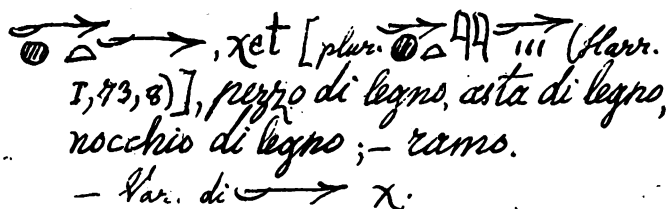 𓐍𓏏𓆱, χet [plur. 𓐍𓏏𓇌𓆱𓏥 (Harr.
I, 73, 8)], pezzo di legno, asta di legno,
nocchio di legno; – ramo.
– Var. di 𓆱 χ.